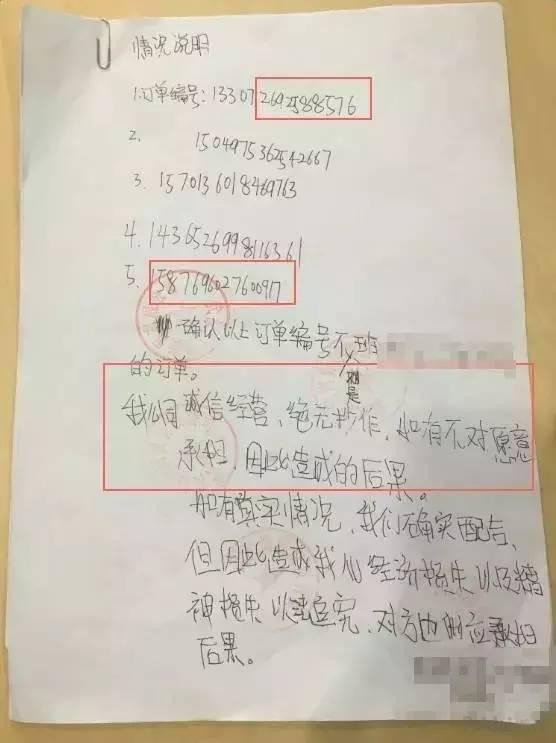 情况说明
1.订单编号:133072692588576
2. 1504975362542667
3. 1570136018469763
4. 1436526998116361
5. 1587696027600917
确认以上订单编号不是
的订单。
我公司诚信经营,绝无炒作,如有不对愿意
承担,因此造成的后果。
如有真实情况,我们确实配合,
但因此造成我们经济损失以及精
神损失以法追究,对方也应承担
后果。